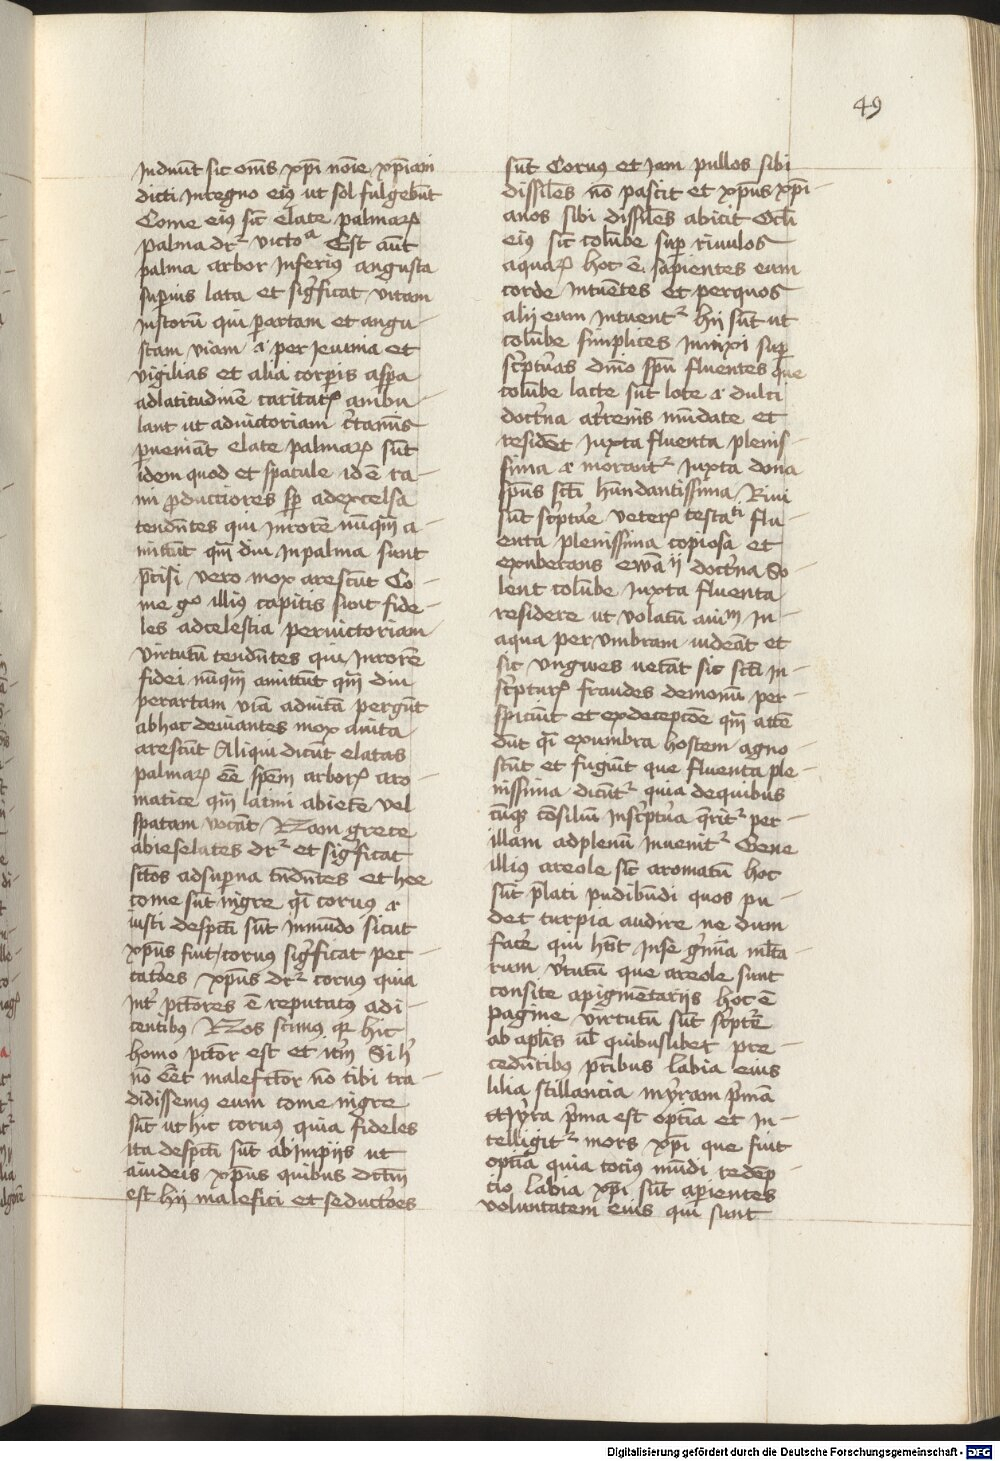 49
induūt sic om̄s xp̄i nōīe xp̄iani
dicti in regno eiꝰ ut sol fulgebūt
Come eiꝰ sic̄ elate palmaꝝ
palma dr̄ victoᵃ Est aūt
palma arbor inferiꝰ angusta
sup̄ius lata et siḡficat vitam
iustorū qui ꝑ artam et angu-
stam viam .i. per ieiunia et
vigilias et alia corp̄is aspa
ad latitudinē caritatꝭ ambu-
lant ut ad victoriam c̄taminis
ꝑueniāt elate palmaꝝ sūt
idem quod et spatule id ē ra-
mi ꝓductiores sp̄ ad excelsa
tendn̄tes qui in rorē nūq̄ a-
mittūt q̄m diu in palma sunt
p̄cisi vero mox arescūt Co-
me gᵒ illiꝰ capitis sunt fide-
les ad celestia per victoriam
virtutū tendn̄tes qui in rorē
fidei nūq̄ amittūt q̄m diu
per artam viā ad vitā pergūt
ab hac deviantes mox a vita
arescūt Aliqui dicūt elatas
palmaꝝ eē spēm arboꝝ aro-
matice q̄m latini abietē vel
spatam vocāt Nam grece
abies elates dr̄ et siḡficat
sc̄tos ad sup̄na tēndn̄tes et hee
come sūt nigre q̄i corvꝰ .i.
iusti despc̄ti sūt in mūdo sicut
xp̄us fuit / corvꝰ siḡficat pec-
catōes xp̄us dr̄ corvꝰ quia
int̄ pc̄tores ē reputatꝰ adi-
centibꝰ Nos scimꝰ qꝫ hic
homo pc̄tor est et itm̄ Si h̄
nō eēt malefc̄tor nō tibi tra-
didissemꝰ eum come nigre
sūt ut hic corvꝰ quia fideles
ita despc̄ti sūt ab impijs ut
a iudeis xp̄us quibus dc̄tm̄
est hij malefici et seductōes
sūt Corvꝰ et iam pullos sibi
dissiles nō pascit et xp̄us xp̄i-
anos sibi dissiles abicit Oc̄li
eiꝰ sic̄ colūbe sup̄ rivulos
aquaꝝ hoc ē sapientes eum
corde intuētes et per quos
alij eum intuent᷑ hij sūt ut
colūbe simplices innixi sup̄
sc̄pturas dīno spū fluentes que
colūbe lacte sūt lote .i. dulci
doct̄na a t̄renis mūdate et
resident iuxta fluenta plenis-
sima .i. morant᷑ iuxta dona
sp̄us sc̄ti hūndantissima Rivi
sūt sc̄pture veterꝭ testaᵗⁱ flu-
enta plenissima copiosa et
exuberans ewāij doct̄na So-
lent colūbe iuxta fluenta
residere ut volatū aviᵐ in
aqua per umbram videāt et
sic ungues vetāt sic sc̄ti in
sc̄pturꝭ fraudes demonū per-
spiciūt et ex descepcōe q̄m attē-
dūt q̄i ex umbra hostem agno-
scūt et fugiūt que fluenta ple-
nissima dicūt᷑ quia de quibus
cūqꝫ cōsiliū in sc̄ptura q̄rit᷑ per
illam ad plenū invenit᷑ Gene
illiꝰ areole sic̄ aromatū hoc
sūt p̄lati pudibūdi quos pu-
det turpia audire ne dum
facē qui hn̄t in se ḡmīa ml̄ta-
rum v̄tutū que areole sunt
consite a pigmētarijs hoc ē
pagine virtutū sūt sc̄pte
ab ap̄lis ul̄ quibuslibet pre-
cedn̄tibꝰ p̄tribus labia eius
lilia stillancia myrram p̄mā
Myrra p̄ma est optīa et in-
telligit᷑ mors xp̄i que fuit
optīa quia tociꝰ mūdi redēp-
cio labia xp̄i sūt aperientes
voluntatem eius qui sunt
Digitalisierung gefördert durch die Deutsche Forschungsgemeinschaft - DFG